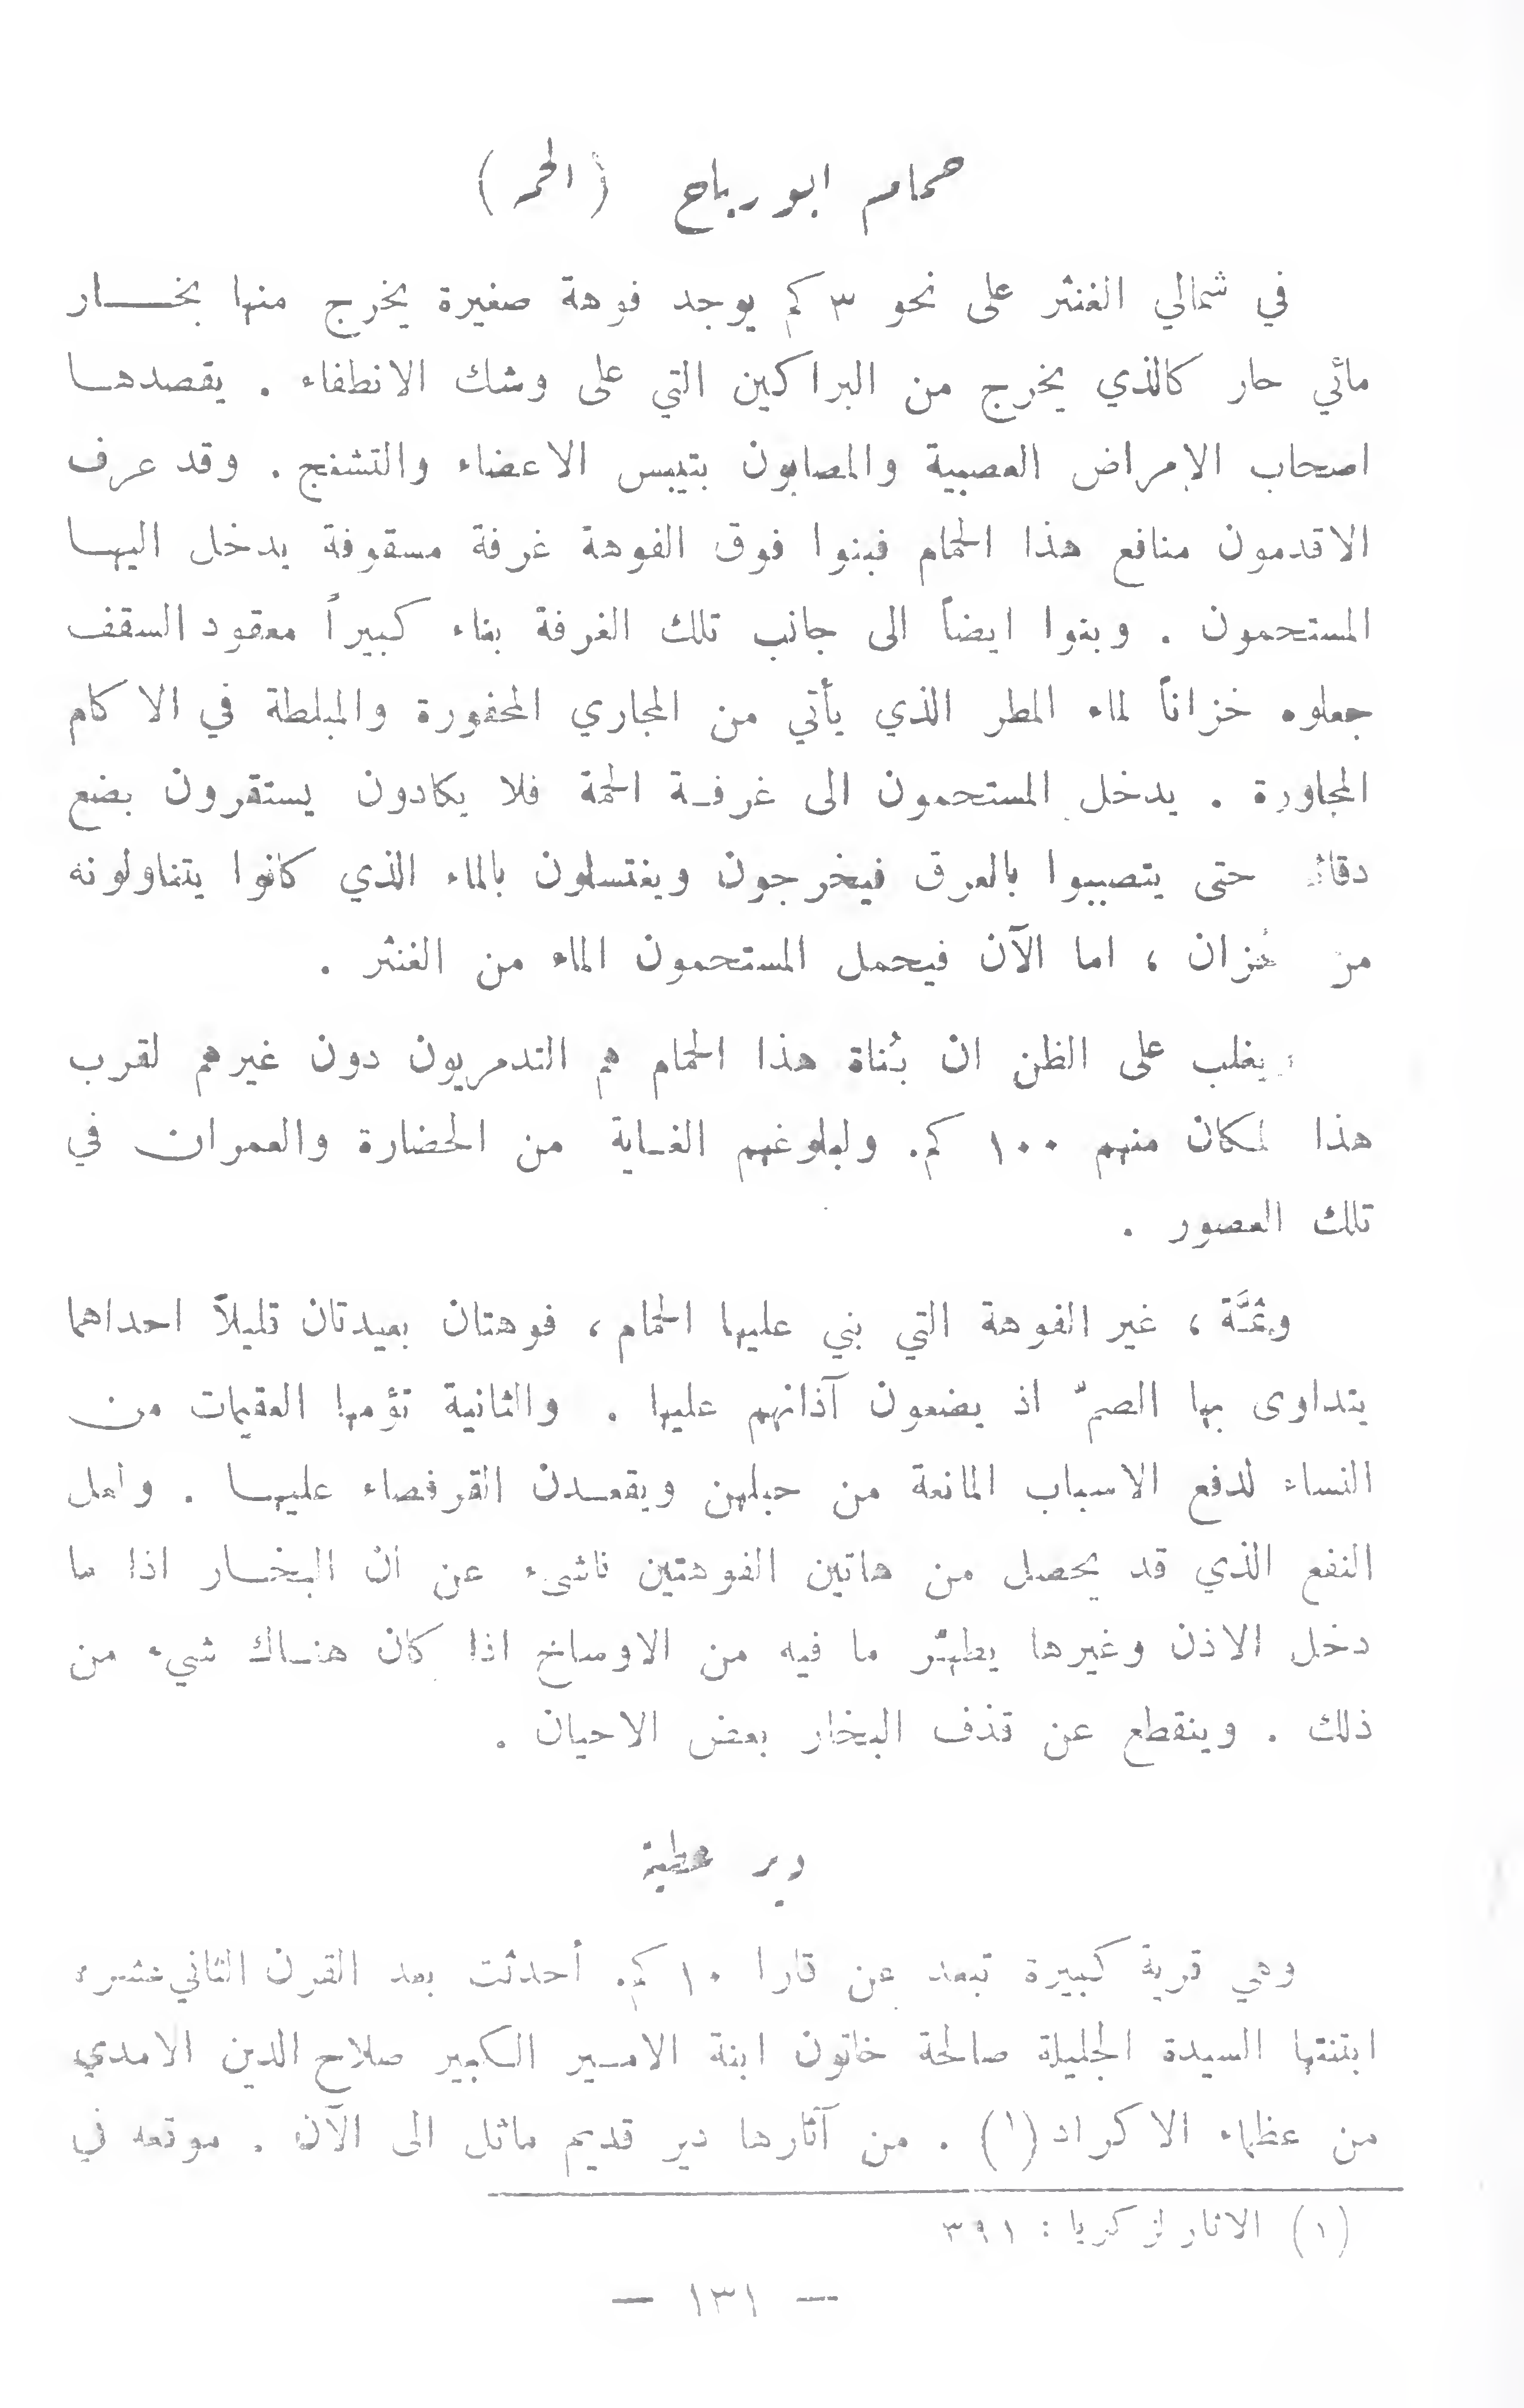 حمام ابو رباح (الحمة)
في شمالي الغنثر على نحو ٣ كم يوجد فوهة صغيرة يخرج منها بخـــار
مائي حار كالذي يخرج من البراكين التي على وشك الانطفاء . يقصدهـا
اصحاب الإمراض العصبية والمصابون بتيبس الاعضاء والتشنج . وقد عرف
الاقدمون منافع هذا الحمام فبنوا فوق الفوهة غرفة مسقوفة يدخل اليهـا
المستحمون . وبنوا ايضاً الى جانب تلك الغرفة بناء كبيراً معقود السقف
جعلوه خزاناً لماء المطر الذي يأتي من المجاري المحفورة والمبلطة في الاكام
المجاورة . يدخل المستحمون الى غرفـة الحمة فلا يكادون يستقرون بضع
دقائ حتى يتصببوا بالعرق فيخرجون ويغتسلون بالماء الذي كانوا يتناولونه
من خزان ، اما الآن فيحمل المستحمون الماء من الغنثر .
ويغلب على الظن ان بُناة هذا الحمام هم التدمريون دون غيرهم لقرب
هذا المكان منهم ١٠٠ كم. ولبلوغهم الغـاية من الحضارة والعمران في
تلك العصور .
وثمَّـة ، غير الفوهة التي بني عليها الحمام ، فوهتان بعيدتان قليلاً احداهما
يتداوى بها الصمّ اذ يضعون آذانهم عليها . والثانية تؤمها العقيمات من
النساء لدفع الاسباب المانعة من حبلهن ويقعـدن القرفصاء عليهـا . ولعل
النفع الذي قد يحصل من هاتين الفوهتين ناشىء عن ان البخـار اذا ما
دخل الاذن وغيرها يطهّر ما فيه من الاوساخ اذا كان هنـاك شيء من
ذلك . وينقطع عن قذف البخار بعض الاحيان .
دير عطية
وهي قرية كبيرة تبعد عن قارا ١٠ كم. أحدثت بعد القرن الثاني عشر ،
ابتنتها السيدة الجليلة صالحة خاتون ابنة الامـير الكبير صلاح الدين الامدي
من عظماء الاكراد (١) . من آثارها دير قديم ماثل الى الآن . موقعه في
(١) الاثار لزكريا : ٣٩١
— ١٣١ —